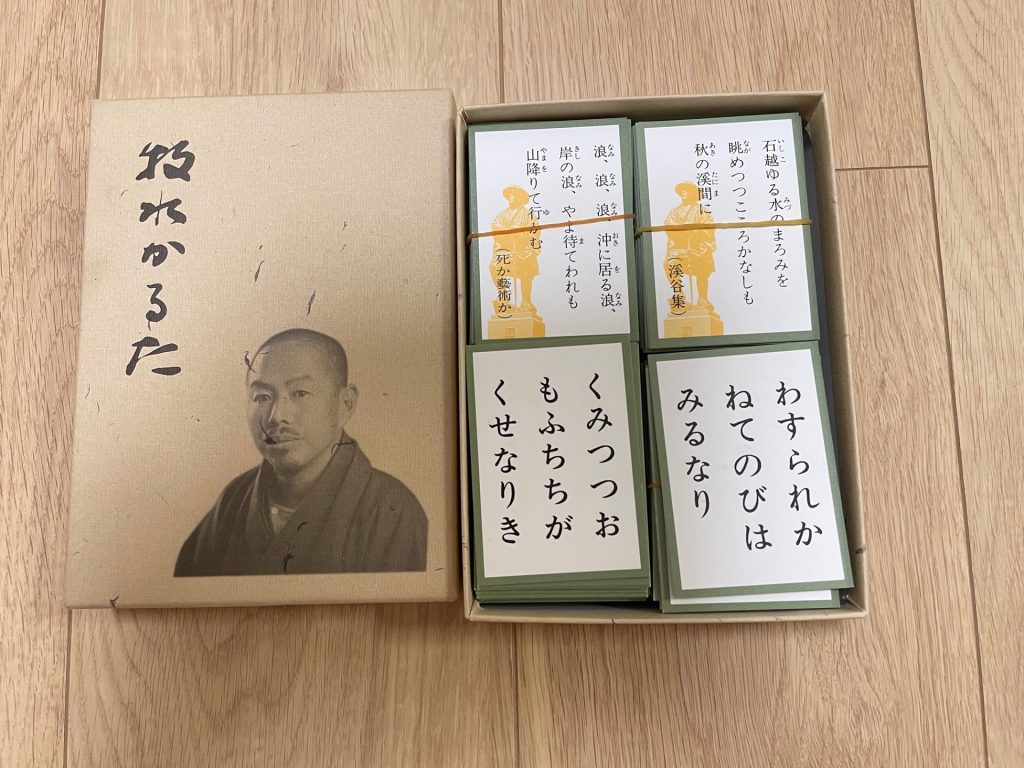 牧水かるた
石越ゆる水のまろみを
眺めつつこころかなしも
秋の溪間に
(溪谷集)
浪、浪、浪、沖に居る浪、
岸の浪、やよ待てわれも
山降りて行かむ
(死か藝術か)
わすられか
ねてのびは
みるなり
くみつつお
もふちちが
くせなりき